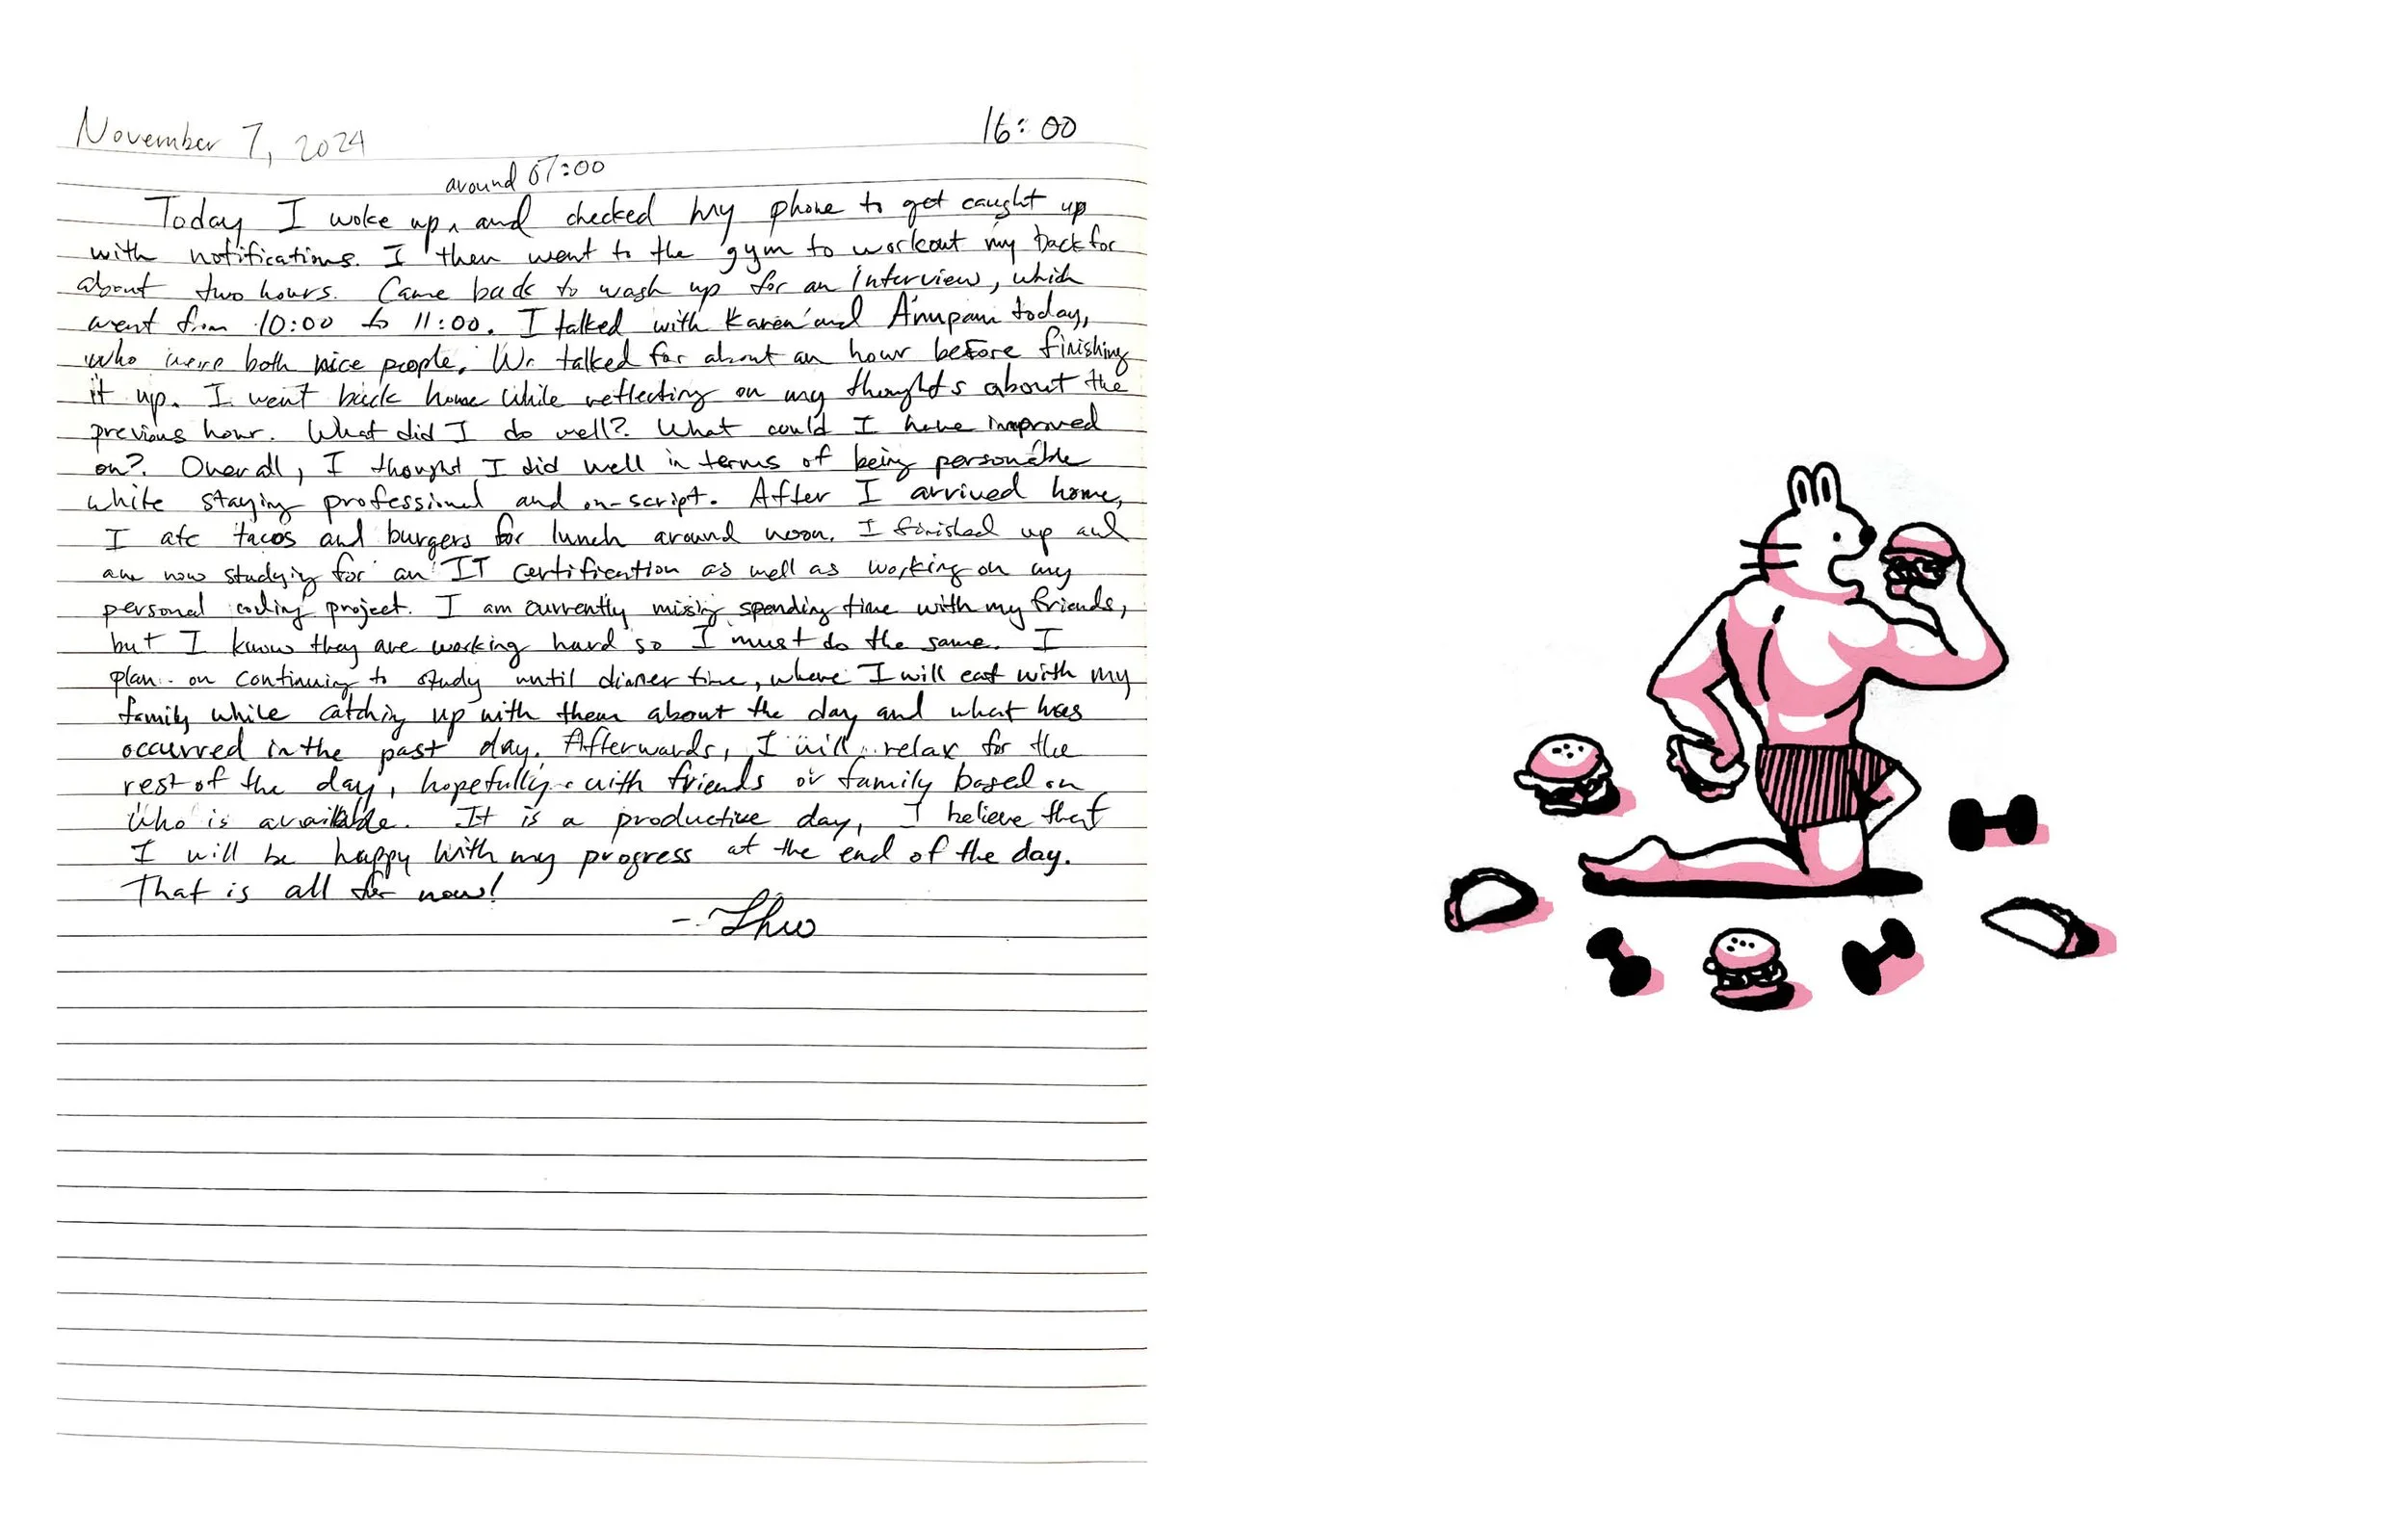 November 7, 2024 16:00
around 07:00
Today I woke up, and checked my phone to get caught up
with notifications. I then went to the gym to workout my back for
about two hours. Came back to wash up for an interview, which
went from 10:00 to 11:00. I talked with Karen and Anupam today,
who were both nice people. We talked for about an hour before finishing
it up. I went back home while reflecting on my thoughts about the
previous hour. What did I do well? What could I have improved
on? Overall, I thought I did well in terms of being personable
while staying professional and on-script. After I arrived home,
I ate tacos and burgers for lunch around noon. I finished up and
am now studying for an IT certification as well as working on my
personal coding project. I am currently missing spending time with my friends,
but I know they are working hard so I must do the same. I
plan on continuing to study until dinner time, where I will eat with my
family while catching up with them about the day and what has
occurred in the past day. Afterwards, I will relax for the
rest of the day, hopefully with friends or family based on
who is available. It is a productive day, I believe that
I will be happy with my progress at the end of the day.
That is all for now!